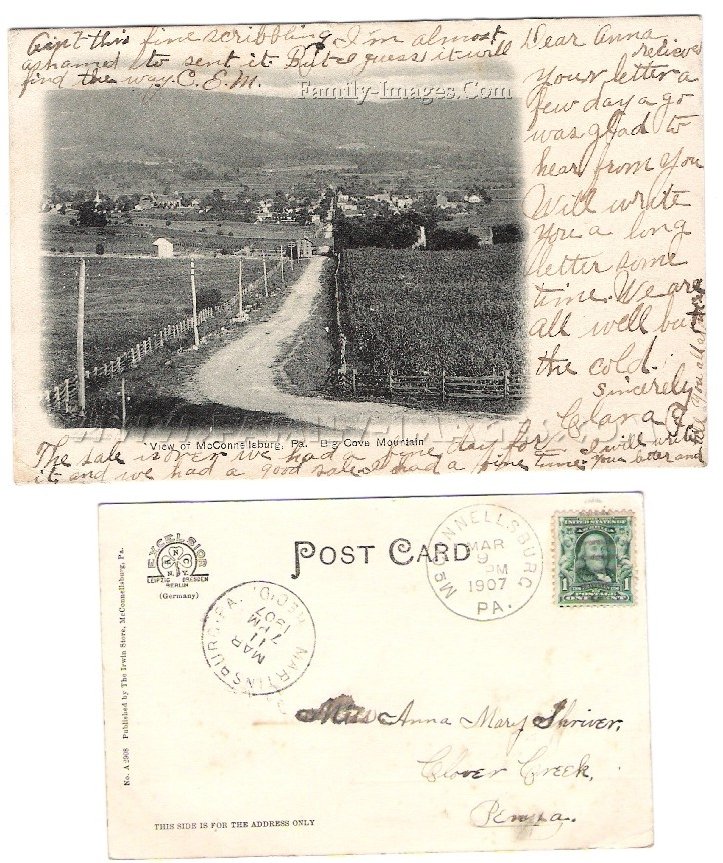 Ain't this fine scribbling I'm almost
ashamed to sent it. But I guess it will
find the way. C. E. M.
Family-Images.Com
Dear Anna
recieved
your letter a
few day a go
was glad to
hear from you
Will write
you a long
letter some
time. We are
all well but
the cold.
Sincerely
Clara
View of McConnellsburg, Pa. Big Cove Mountain
The sale is over we had a fine day for
it and we had a good sale. I had a fine time.
I will write
you better and
tell you all
EXCELSIOR
LEIPZIG DRESDEN
BERLIN
(Germany)
POST CARD
McCONNELLSBURG
MAR
9
PM
1907
PA.
UNITED STATES OF
1
1
POSTAGE
ONE CENT
MARTINSBURG, PA.
REC'D.
MAR
11
7 PM
1907
Miss Anna Mary Shriver,
Clover Creek,
Penna.
No. A 2908 Published by The Irwin Store, McConnellsburg, Pa.
THIS SIDE IS FOR THE ADDRESS ONLY